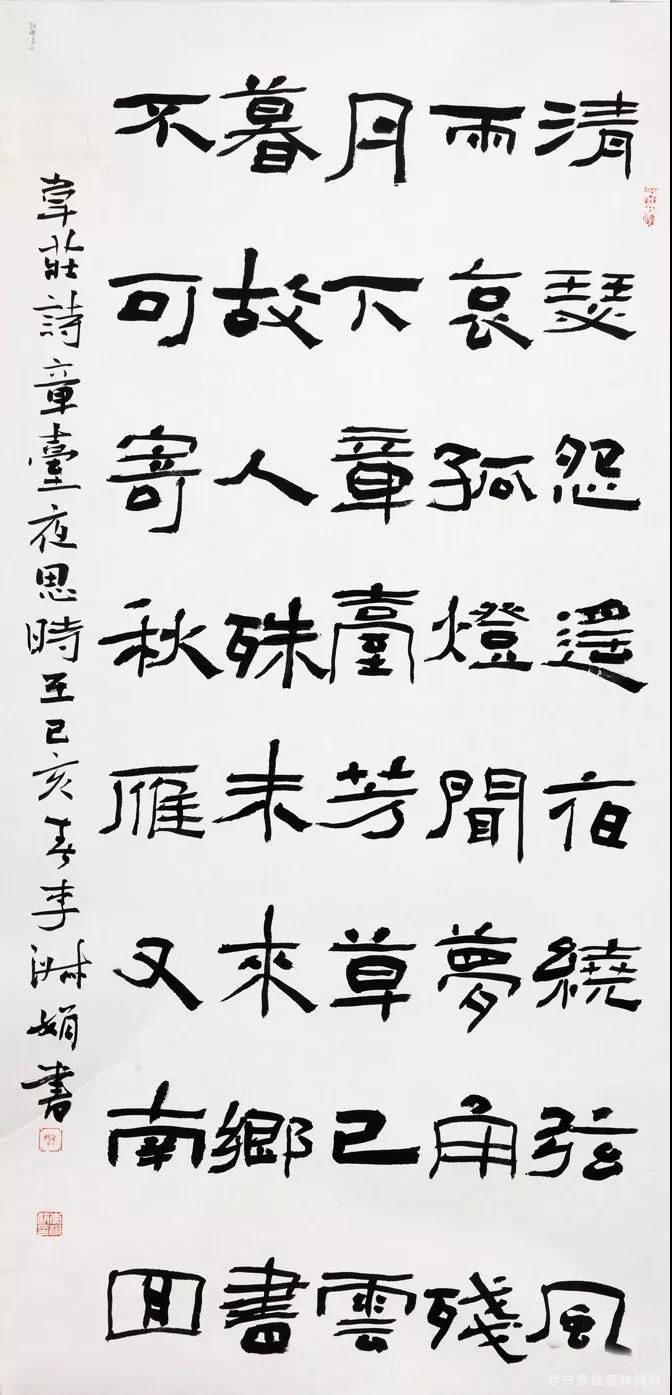 清瑟怨遥夜繞弦風
雨哀孤燈聞夢角殘
月下章臺芳草已雲
暮故人殊未來鄉書
不可寄秋雁又南囬
韋莊詩章臺夜思時己亥春李淑娟書
@甘肃画廊联盟网